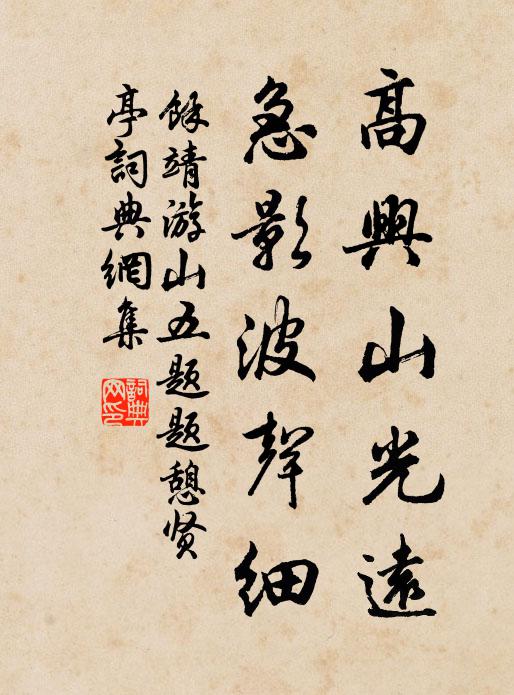 高興山光遠
急影波聲細
餘靖游山五題題憩贤
亭詞典網集
詞典网印